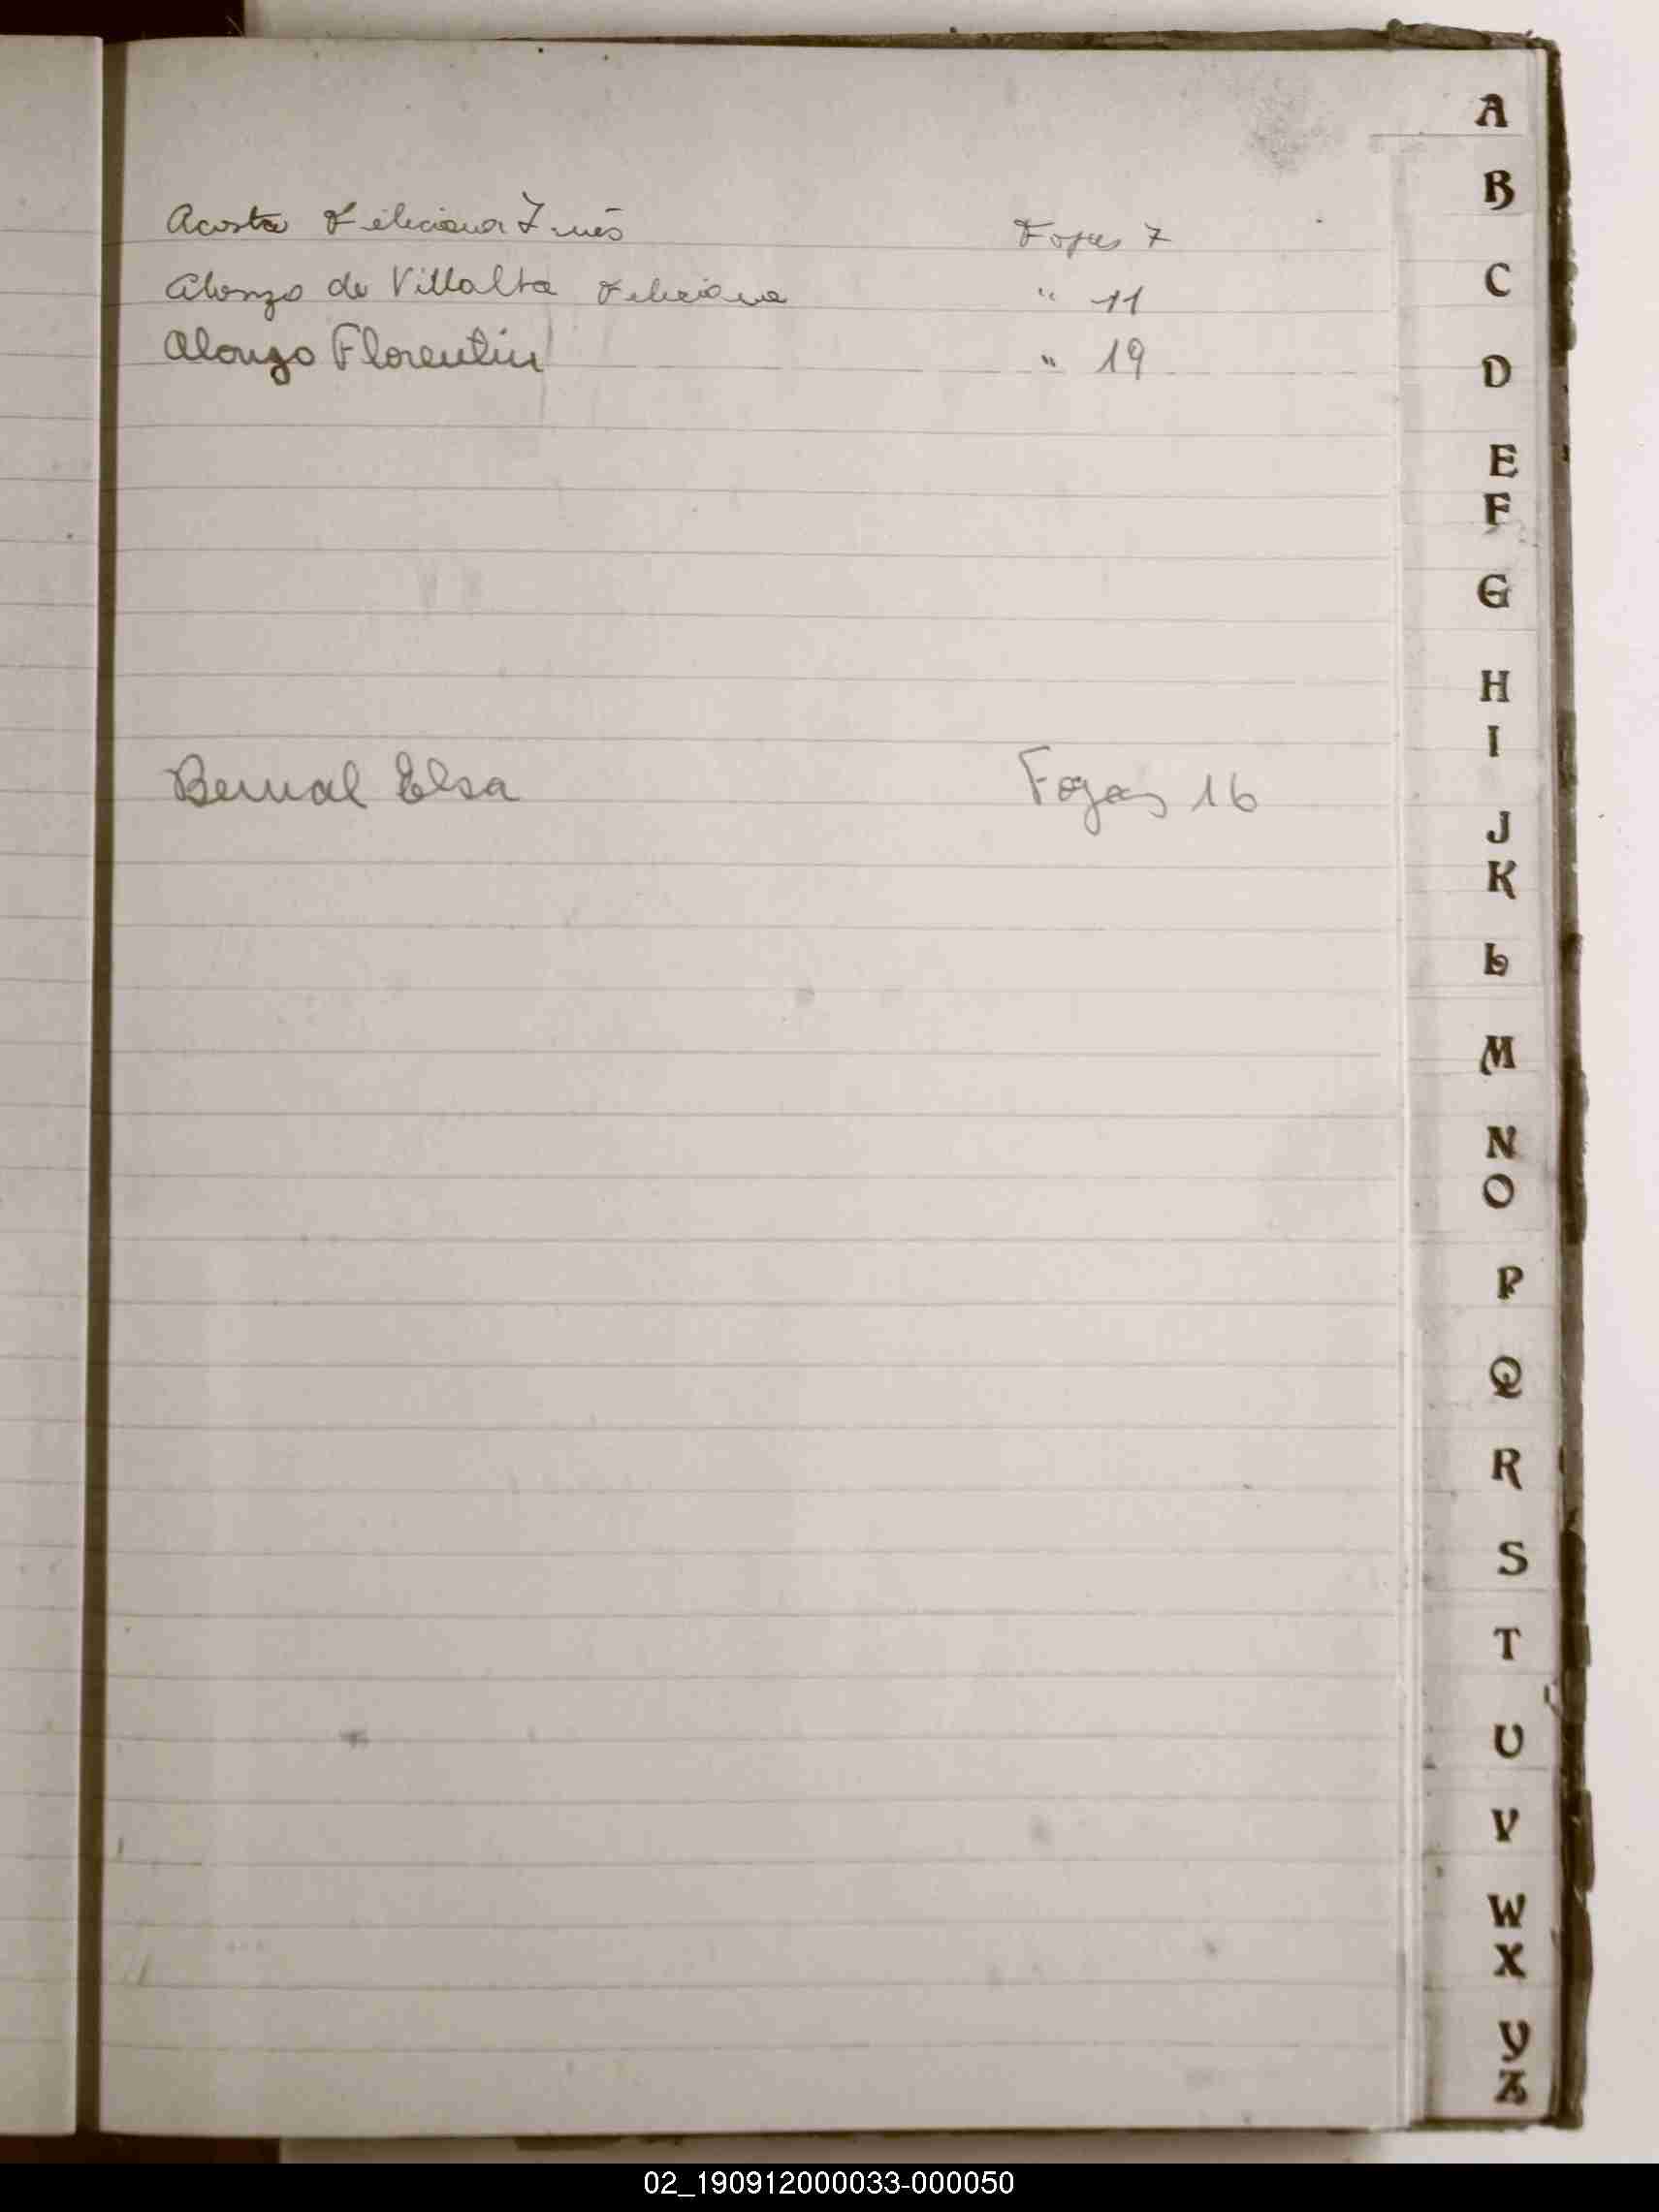 Acosta Feliciana Inés Fojas 7
Alonzo de Villalta Feliciana " 11
Alonzo Florentin " 19
Bernal Elsa Fojas 16
A
B
C
D
E
F
G
H
I
J
K
L
M
N
O
P
Q
R
S
T
U
V
W
X
Y
Z
02_190912000033-000050